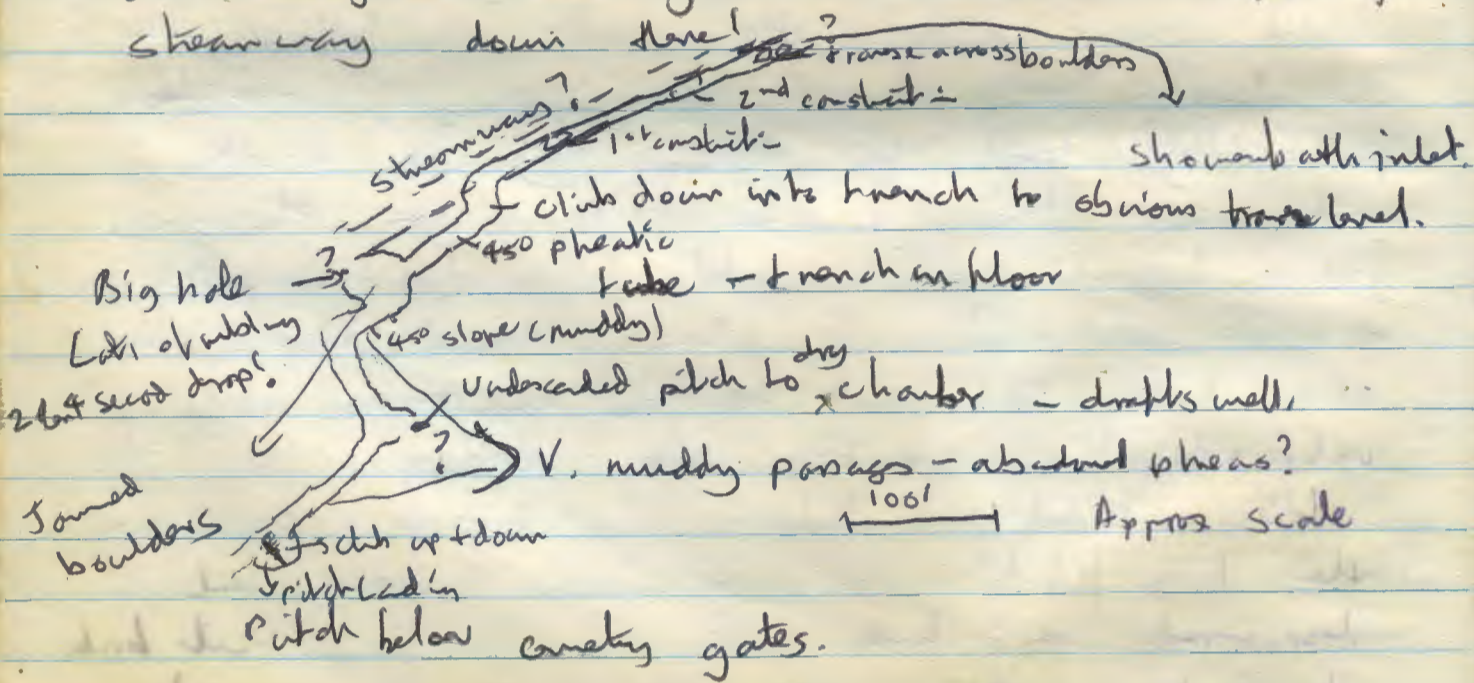 streamway down there!
?
traverse across boulders
2nd constriction
streamways?
1st constriction
Shower bath inlet.
climb down into trench to obvious traverse level.
45° phreatic
tube - trench in floor
?
Big hole
Lots of rubbing
45° slope (muddy)
2 second drop!
Undescended pitch to dry chamber - drafts well.
?
V. muddy passage - abandoned phreas?
100'
Approx scale
Jammed
boulders
climb up + down
pitch lead in
Pitch below cemetery gates.